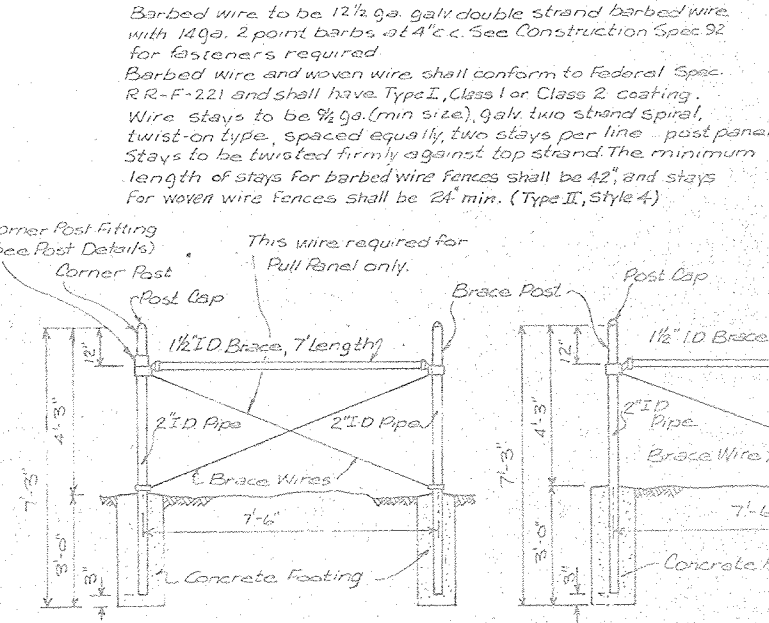 Barbed wire to be 12½ ga. galv. double strand barbed wire
with 14ga. 2 point barbs at 4"c.c. See Construction Spec. 92
for fasteners required
Barbed wire and woven wire shall conform to Federal Spec.
RR-F-221 and shall have Type I, Class 1 or Class 2 coating.
Wire stays to be 9½ ga.(min size), galv. two strand spiral,
twist-on type, spaced equally, two stays per line post panel
Stays to be twisted firmly against top strand. The minimum
length of stays for barbed wire fences shall be 42", and stays
for woven wire fences shall be 24" min. (Type II, Style 4)
orner Post Fitting
ee Post Details)
Corner Post
Post Cap
This wire required for
Pull Panel only.
Brace Post
Post Cap
12"
1½" I D Brace, 7' Length
12"
1½" I D Brace
4'-3"
7'-3"
2" I D Pipe
2" I D Pipe
4'-3"
7'-3"
2" I D
Pipe
Brace Wires
Brace Wire
7'-6"
7'-6
3'-0"
3"
Concrete Footing
3'-0"
3"
Concrete